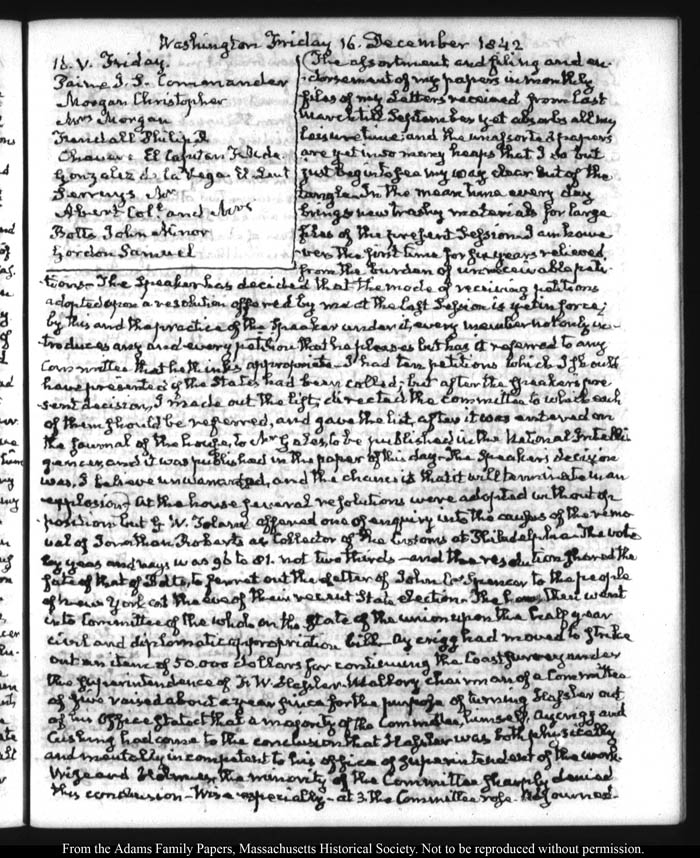 Washington Friday 16. December 1842
16. V. Friday.
Paine J. S. Commander
Morgan Christopher
Mrs Morgan
Kendall Philip R
Chaver: El Capitan
Gonzalez de la Vega El Lieut
Serruys Mr
Abert Col. and Mrs
Botts John Minor
Gordon Samuel
The assortment and filing and en-
dorsement of my papers in monthly
files of my Letters received from last
March till September yet absorbs all my
leisure time; and the unassorted papers
are yet in so many heaps that I do but
just begin to see my way clear out of the
tangle. In the mean time every day
brings new trashy materials for large
files of the present Session. I am howe-
ver the first time for six years relieved
from the burden of unreceivable peti-
tions. The Speaker has decided that the mode of receiving petitions
adopted upon a resolution offered by me at the last Session is yet in force;
by this and the practice of the Speaker under it, every member not only in-
troduces any and every petition that he pleases but has it referred to any
Committee that he thinks appropriate. I had ten petitions which I should
have presented if the States had been called; but after the Speaker's pre-
sent decision, I made out the list, directed the committee to which each
of them should be referred, and gave the list, after it was entered on
the Journal of the house, to Mr Gales, to be published in the National Intelli
gencer, and it was published in the paper of this day. The Speaker's decision
was, I believe unwarranted, and the chance is that it will terminate in an
explosion. At the house several resolutions were adopted without op-
position but J. W. Toland offered one of enquiry into the causes of the remo
val of Jonathan Roberts as Collector of the Customs at Philadelphia. The vote
by yeas and nays was 96 to 81. not two thirds—and the resolution shared the
fate of that of Botts, to ferret out the letter of John C. Spencer to the people
of New York at the eve of their recent State election. The house then went
into Committee of the whole on the State of the union upon the half year
civil and diplomatic appropriation bill. Aycrigg had moved to strike
out an item of 50.000 dollars for continuing the Coast survey under
the superintendence of F. R. Hassler. Mallory chairman of a Committee
of five raised about a year since for the purpose of turning Hassler out
of his Office stated that a majority of the Committee, himself, Aycrigg and
Cushing had come to the conclusion that Hassler was both physically
and mentally incompetent to his office of superintendent of the work.
Wise and Holmes, the minority of the Committee sharply denied
this conclusion—Wise especially—at 3 the Committee rose. Adjourned.
From the Adams Family Papers, Massachusetts Historical Society. Not to be reproduced without permission.